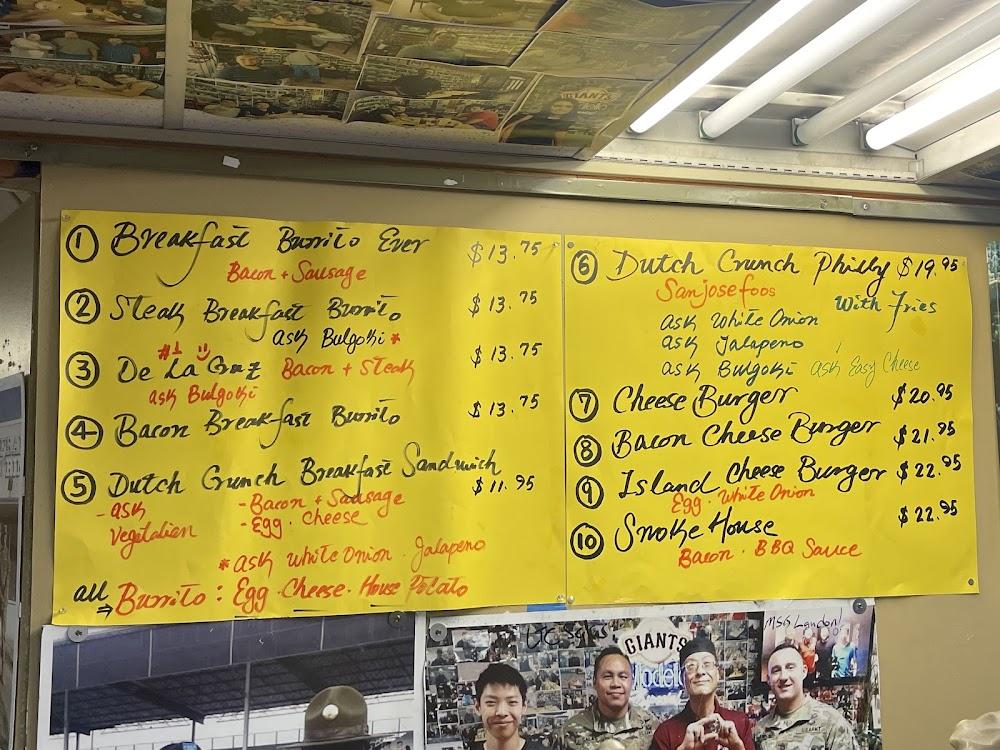 ① Breakfast Burrito Ever $13.75
Bacon + Sausage
② Steak Breakfast Burrito $13.75
ask Bulgoki *
#1
③ De La Cruz Bacon + Steak $13.75
ask Bulgoki
④ Bacon Breakfast Burrito $13.75
⑤ Dutch Crunch Breakfast Sandwich $11.95
- ask - Bacon + Sausage
Vegetalien - Egg . Cheese
* ask White Onion . Jalapeno
all ⇒ Burrito : Egg . Cheese . House Potato
⑥ Dutch Crunch Philly $19.95
Sanjosefoos With Fries
ask White Onion
ask Jalapeno
ask Bulgoki ask Easy Cheese
⑦ Cheese Burger $20.95
⑧ Bacon Cheese Burger $21.95
⑨ Island Cheese Burger $22.95
Egg . White Onion
⑩ Smoke House $22.95
Bacon . BBQ Sauce
GIANTS
MSG Landon!